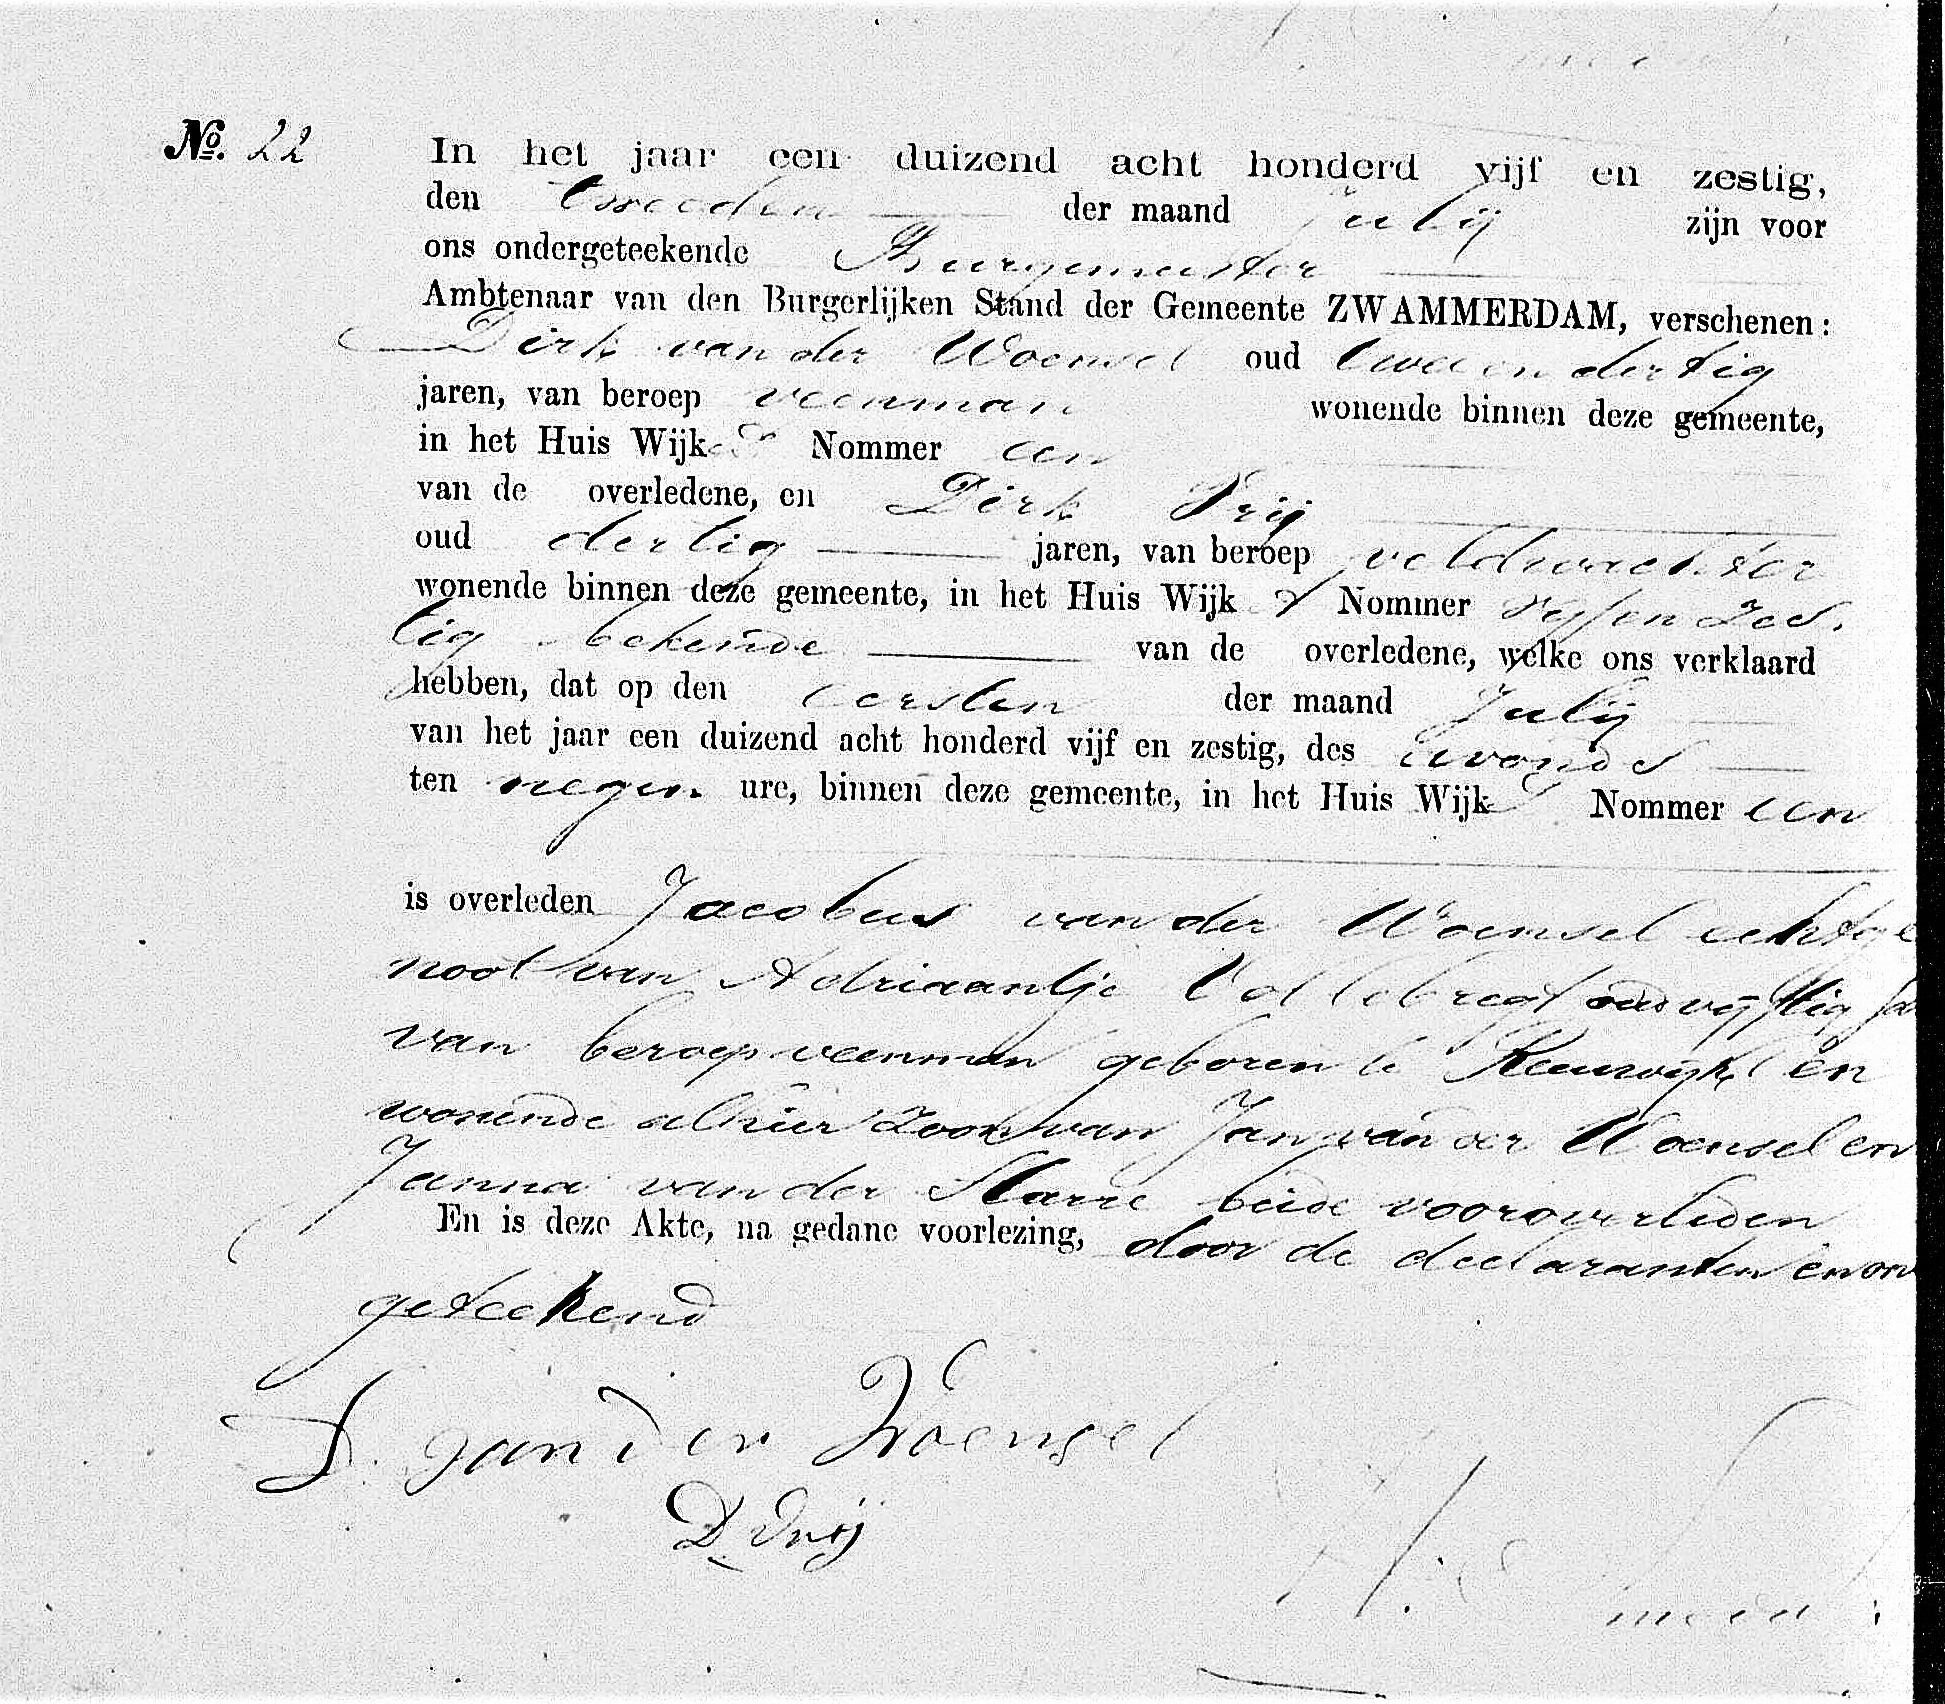 No. 22
In het jaar een duizend acht honderd vijf en zestig,
den tweeden der maand Julij zijn voor
ons ondergeteekende Burgemeester
Ambtenaar van den Burgerlijken Stand der Gemeente ZWAMMERDAM, verschenen:
Dirk van der Woensel oud twee en dertig
jaren, van beroep veenman wonende binnen deze gemeente,
in het Huis Wijk Nommer een
van de overledene, en Dirk Vrij
oud dertig jaren, van beroep veldwachter
wonende binnen deze gemeente, in het Huis Wijk Nommer vijf en zes
tig bekende van de overledene, welke ons verklaard
hebben, dat op den eersten der maand Julij
van het jaar een duizend acht honderd vijf en zestig, des avonds
ten negen ure, binnen deze gemeente, in het Huis Wijk Nommer een
is overleden Jacobus van der Woensel echtge
noot van Adriaantje oud vijftig ja
van beroep veenman geboren te Reeuwijk en
wonende alhier zoon van Jan van der Woensel en
Janna van der Starre beide vooroverleden
En is deze Akte, na gedane voorlezing, door de declaranten en on
geteekend
D. van der Woensel
D Vrij